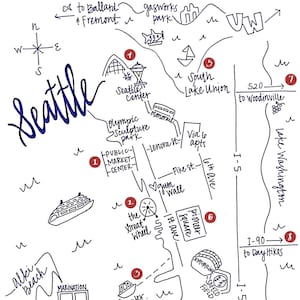 to Ballard
& Fremont
gasworks
park
UW
N
W
E
S
Seattle
4
Seattle
Center
5
South
Lake Union
520
7
to Woodinville
Olympic
Sculpture
park
Via 6
apts
Lenora St
1
PUBLIC
MARKET
CENTER
Pike St
6th Ave
I-5
Lake Washington
gum
wall
2
the
great
wheel
1st Ave
pioneer
square
6
I-90
8
to Day Hikes
3
alki
beach
MARINATION